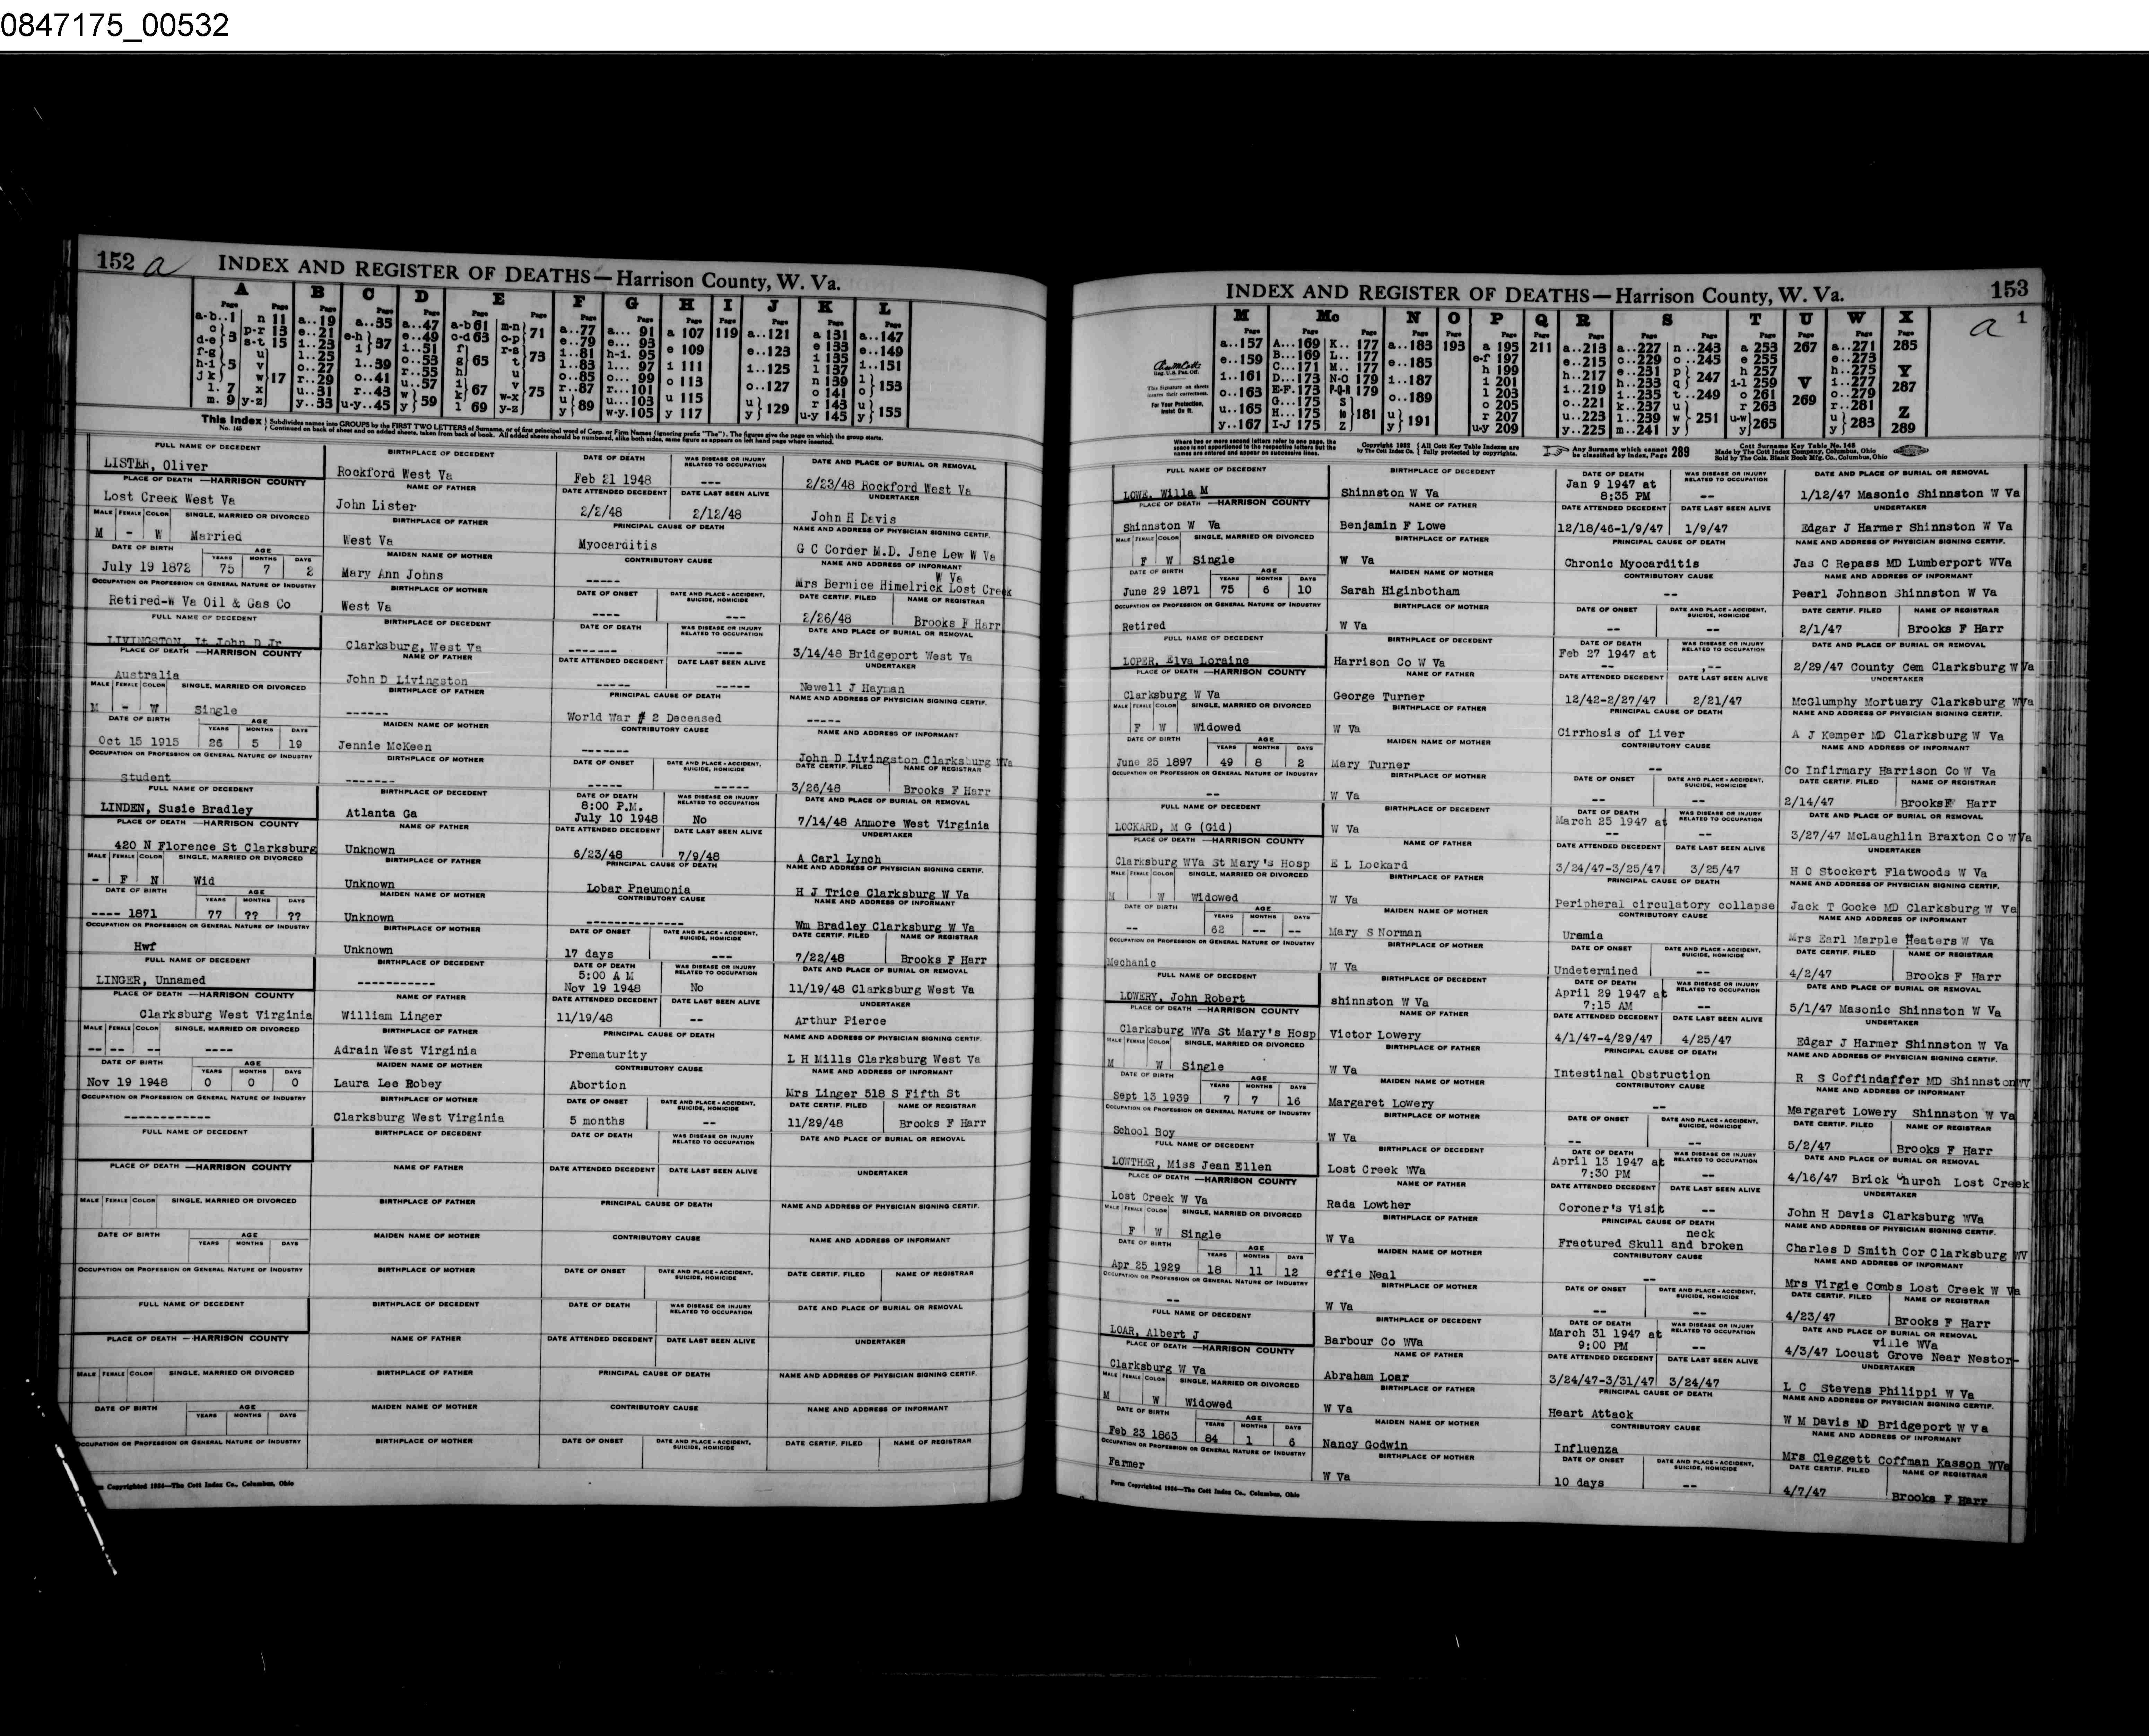 0847175_00532
152 a
INDEX AND REGISTER OF DEATHS—Harrison County, W. Va.
FULL NAME OF DECEDENT
LISTER, Oliver
BIRTHPLACE OF DECEDENT
Rockford West Va
DATE OF DEATH
Feb 21 1948
WAS DISEASE OR INJURY RELATED TO OCCUPATION
---
DATE AND PLACE OF BURIAL OR REMOVAL
2/23/48 Rockford West Va
PLACE OF DEATH—HARRISON COUNTY
Lost Creek West Va
NAME OF FATHER
John Lister
DATE ATTENDED DECEDENT
2/2/48
DATE LAST SEEN ALIVE
2/12/48
UNDERTAKER
John H Davis
MALE FEMALE COLOR SINGLE, MARRIED OR DIVORCED
M - W Married
BIRTHPLACE OF FATHER
West Va
PRINCIPAL CAUSE OF DEATH
Myocarditis
NAME AND ADDRESS OF PHYSICIAN SIGNING CERTIF.
G C Corder M.D. Jane Lew W Va
DATE OF BIRTH
July 19 1872
AGE YEARS MONTHS DAYS
75 7 2
MAIDEN NAME OF MOTHER
Mary Ann Johns
CONTRIBUTORY CAUSE
-----
NAME AND ADDRESS OF INFORMANT
W Va
Mrs Bernice Himelrick Lost Creek
OCCUPATION OR PROFESSION OR GENERAL NATURE OF INDUSTRY
Retired-W Va Oil & Gas Co
BIRTHPLACE OF MOTHER
West Va
DATE OF ONSET
----
DATE AND PLACE-ACCIDENT, SUICIDE, HOMICIDE
---
DATE CERTIF. FILED
2/26/48
NAME OF REGISTRAR
Brooks F Harr
LIVINGSTON, Lt John D Jr
Clarksburg, West Va
-------
----
3/14/48 Bridgeport West Va
Australia
John D Livingston
-----
-----
Newell J Hayman
M - W Single
------
World War # 2 Deceased
-----
Oct 15 1915
26 5 19
Jennie McKeen
-------
John D Livingston Clarksburg WVa
Student
-------
-----
-----
3/26/48
Brooks F Harr
LINDEN, Susie Bradley
Atlanta Ga
8:00 P.M.
July 10 1948
No
7/14/48 Anmore West Virginia
420 N Florence St Clarksburg
Unknown
6/23/48
7/9/48
A Carl Lynch
- F N Wid
Unknown
Lobar Pneumonia
H J Trice Clarksburg W Va
---- 1871
77 ?? ??
Unknown
--------------
Wm Bradley Clarksburg W Va
Hwf
Unknown
17 days
---
7/22/48
Brooks F Harr
LINGER, Unnamed
-----------
5:00 A M
Nov 19 1948
No
11/19/48 Clarksburg West Va
Clarksburg West Virginia
William Linger
11/19/48
--
Arthur Pierce
-- -- -- ----
Adrain West Virginia
Prematurity
L H Mills Clarksburg West Va
Nov 19 1948
0 0 0
Laura Lee Robey
Abortion
Mrs Linger 518 S Fifth St
------------
Clarksburg West Virginia
5 months
--
11/29/48
Brooks F Harr
Form Copyrighted 1934—The Cott Index Co., Columbus, Ohio
INDEX AND REGISTER OF DEATHS—Harrison County, W. Va.
153
a 1
LOWE, Willa M
Shinnston W Va
Jan 9 1947 at
8:35 PM
--
1/12/47 Masonic Shinnston W Va
Shinnston W Va
Benjamin F Lowe
12/18/46-1/9/47
1/9/47
Edgar J Harmer Shinnston W Va
F W Single
W Va
Chronic Myocarditis
Jas C Repass MD Lumberport WVa
June 29 1871
75 6 10
Sarah Higinbotham
--
Pearl Johnson Shinnston W Va
Retired
W Va
--
--
2/1/47
Brooks F Harr
LOPER, Elva Loraine
Harrison Co W Va
Feb 27 1947 at
--
--
2/29/47 County Cem Clarksburg W Va
Clarksburg W Va
George Turner
12/42-2/27/47
2/21/47
McGlumphy Mortuary Clarksburg WVa
F W Widowed
W Va
Cirrhosis of Liver
A J Kemper MD Clarksburg W Va
June 25 1897
49 8 2
Mary Turner
--
Co Infirmary Harrison Co W Va
--
W Va
--
--
2/14/47
BrooksF Harr
LOCKARD, M G (Gid)
W Va
March 25 1947 at
--
--
3/27/47 McLaughlin Braxton Co WVa
Clarksburg WVa St Mary's Hosp
E L Lockard
3/24/47-3/25/47
3/25/47
H O Stockert Flatwoods W Va
M W Widowed
W Va
Peripheral circulatory collapse
Jack T Gocke MD Clarksburg W Va
--
62 -- --
Mary S Norman
Uremia
Mrs Earl Marple Heaters W Va
Mechanic
W Va
Undetermined
--
4/2/47
Brooks F Harr
LOWERY, John Robert
shinnston W Va
April 29 1947 at
7:15 AM
--
5/1/47 Masonic Shinnston W Va
Clarksburg WVa St Mary's Hosp
Victor Lowery
4/1/47-4/29/47
4/25/47
Edgar J Harmer Shinnston W Va
M W Single
W Va
Intestinal Obstruction
R S Coffindaffer MD Shinnston WV
Sept 13 1939
7 7 16
Margaret Lowery
--
Margaret Lowery Shinnston W Va
School Boy
W Va
--
--
5/2/47
Brooks F Harr
LOWTHER, Miss Jean Ellen
Lost Creek WVa
April 13 1947 at
7:30 PM
--
4/16/47 Brick Church Lost Creek
Lost Creek W Va
Rada Lowther
Coroner's Visit
--
John H Davis Clarksburg WVa
F W Single
W Va
neck
Fractured Skull and broken
Charles D Smith Cor Clarksburg WV
Apr 25 1929
18 11 12
effie Neal
--
Mrs Virgie Combs Lost Creek W Va
--
W Va
--
--
4/23/47
Brooks F Harr
LOAR, Albert J
Barbour Co WVa
March 31 1947 at
9:00 PM
--
ville WVa
4/3/47 Locust Grove Near Nestor-
Clarksburg W Va
Abraham Loar
3/24/47-3/31/47
3/24/47
L C Stevens Philippi W Va
M W Widowed
W Va
Heart Attack
W M Davis MD Bridgeport W Va
Feb 23 1863
84 1 6
Nancy Godwin
Influenza
Mrs Cleggett Coffman Kasson WVa
Farmer
W Va
10 days
--
4/7/47
Brooks F Harr
Form Copyrighted 1934—The Cott Index Co., Columbus, Ohio